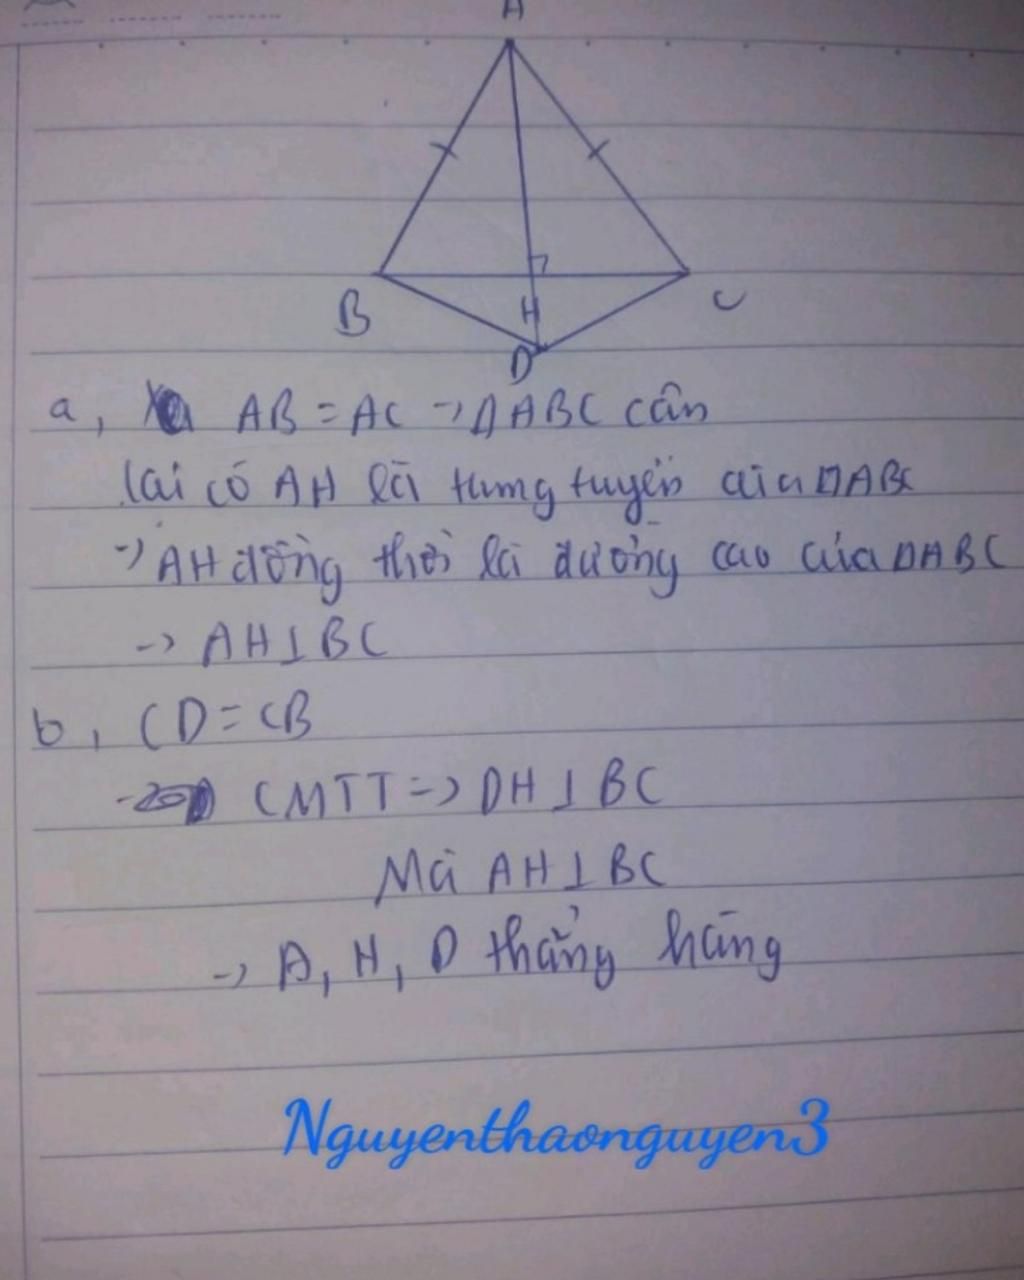 A
B
H
C
D
a, AB = AC → ΔABC cân
lại có AH là trung tuyến của ΔABC
→ AH đồng thời là đường cao của ΔABC
→ AH ⊥ BC
b, CD = CB
CMTT => DH ⊥ BC
Mà AH ⊥ BC
→ A, H, D thẳng hàng
Nguyenthaonguyen3